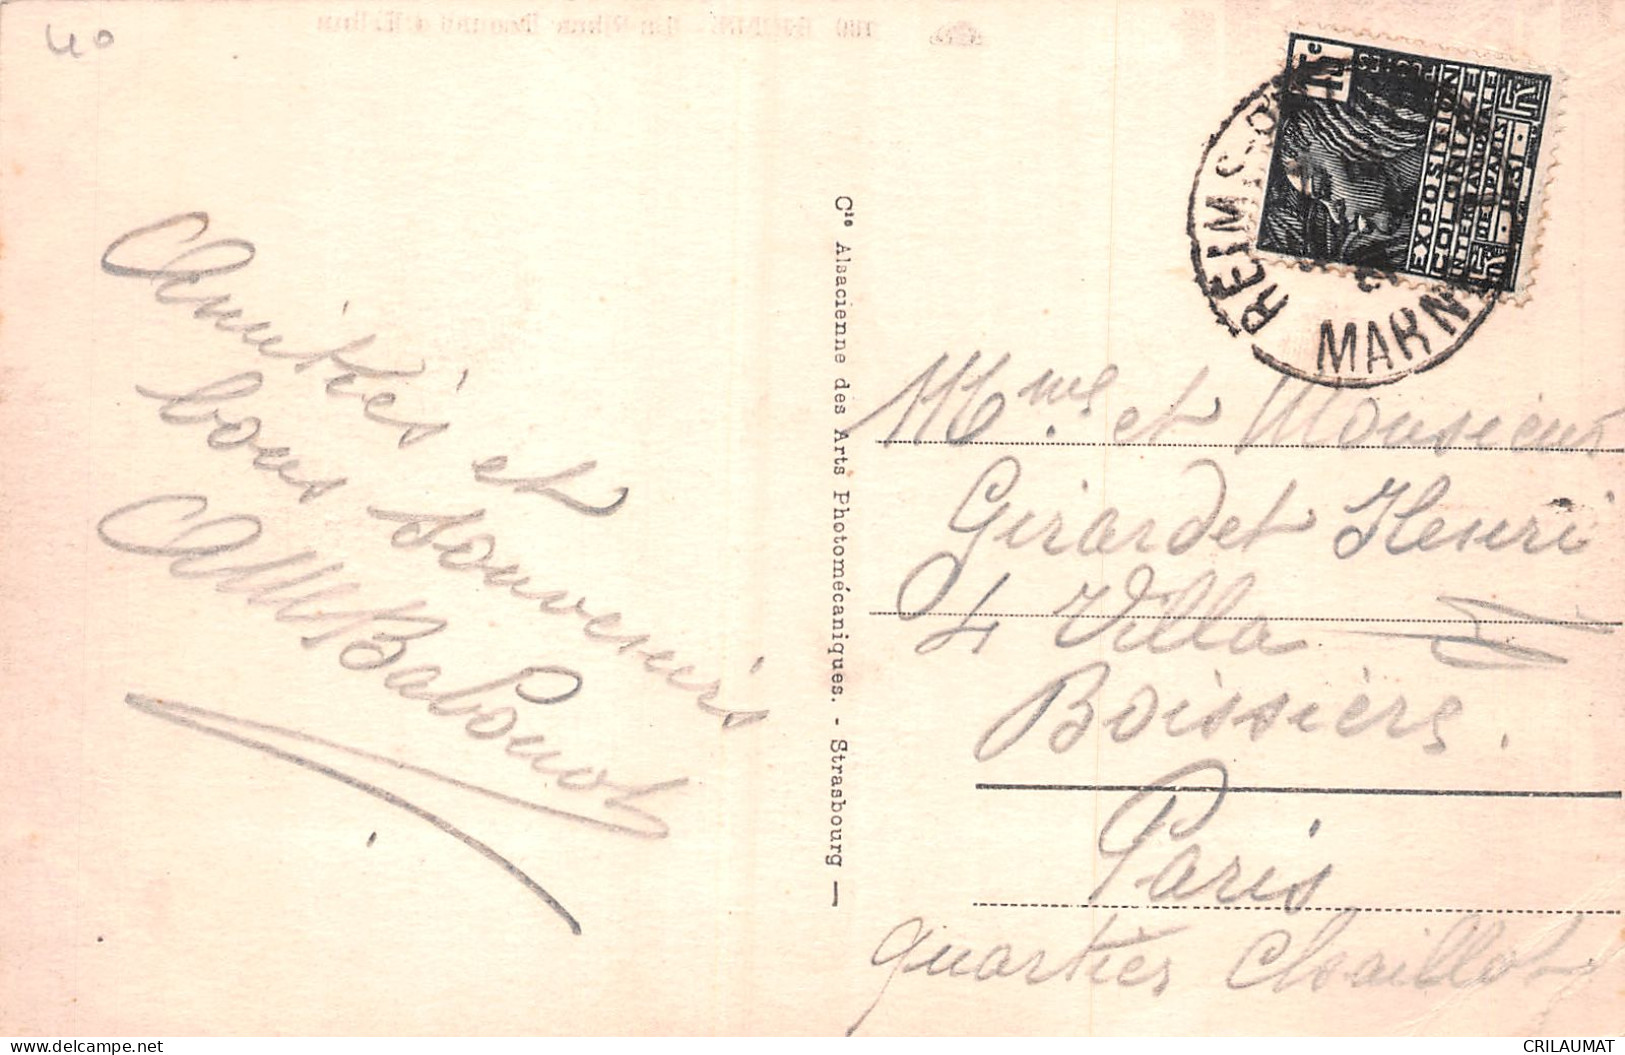 40
Amitiés et
bons souvenirs
AM Babouot
Cie Alsacienne des Arts Photomécaniques. - Strasbourg
15c
POSTES
EXPOSITION
COLONIALE
INTERNATIONALE
DE PARIS
1931
REIMS
MARNE
Mme et Monsieur
Girardet Henri
4 Villa
Boissière.
Paris
quartier Chaillot
delcampe.net
CRILAUMAT